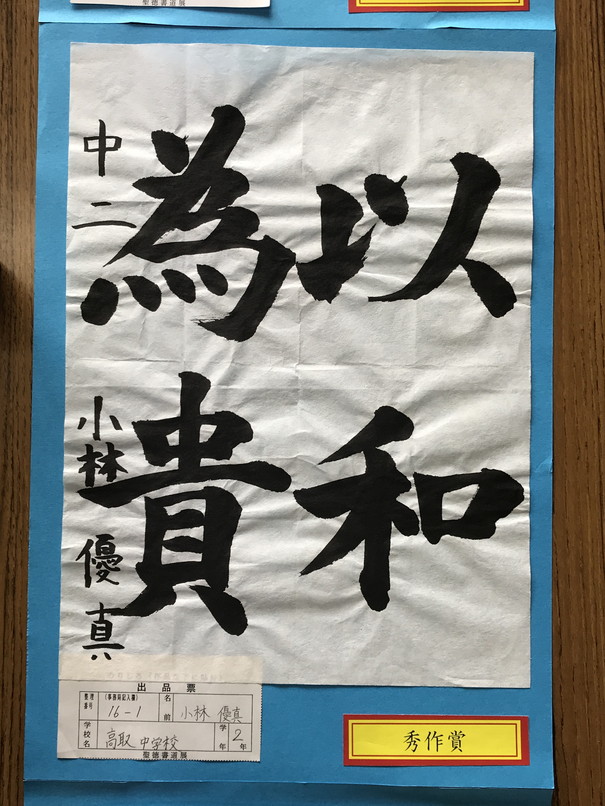 聖徳書道展
以和
為貴
中二 小林 優真
出品票
整理番号 (事務局記入欄) 16-1 名前 小林 優真
学校名 高取 中学校 学年 2年
聖徳書道展
秀作賞